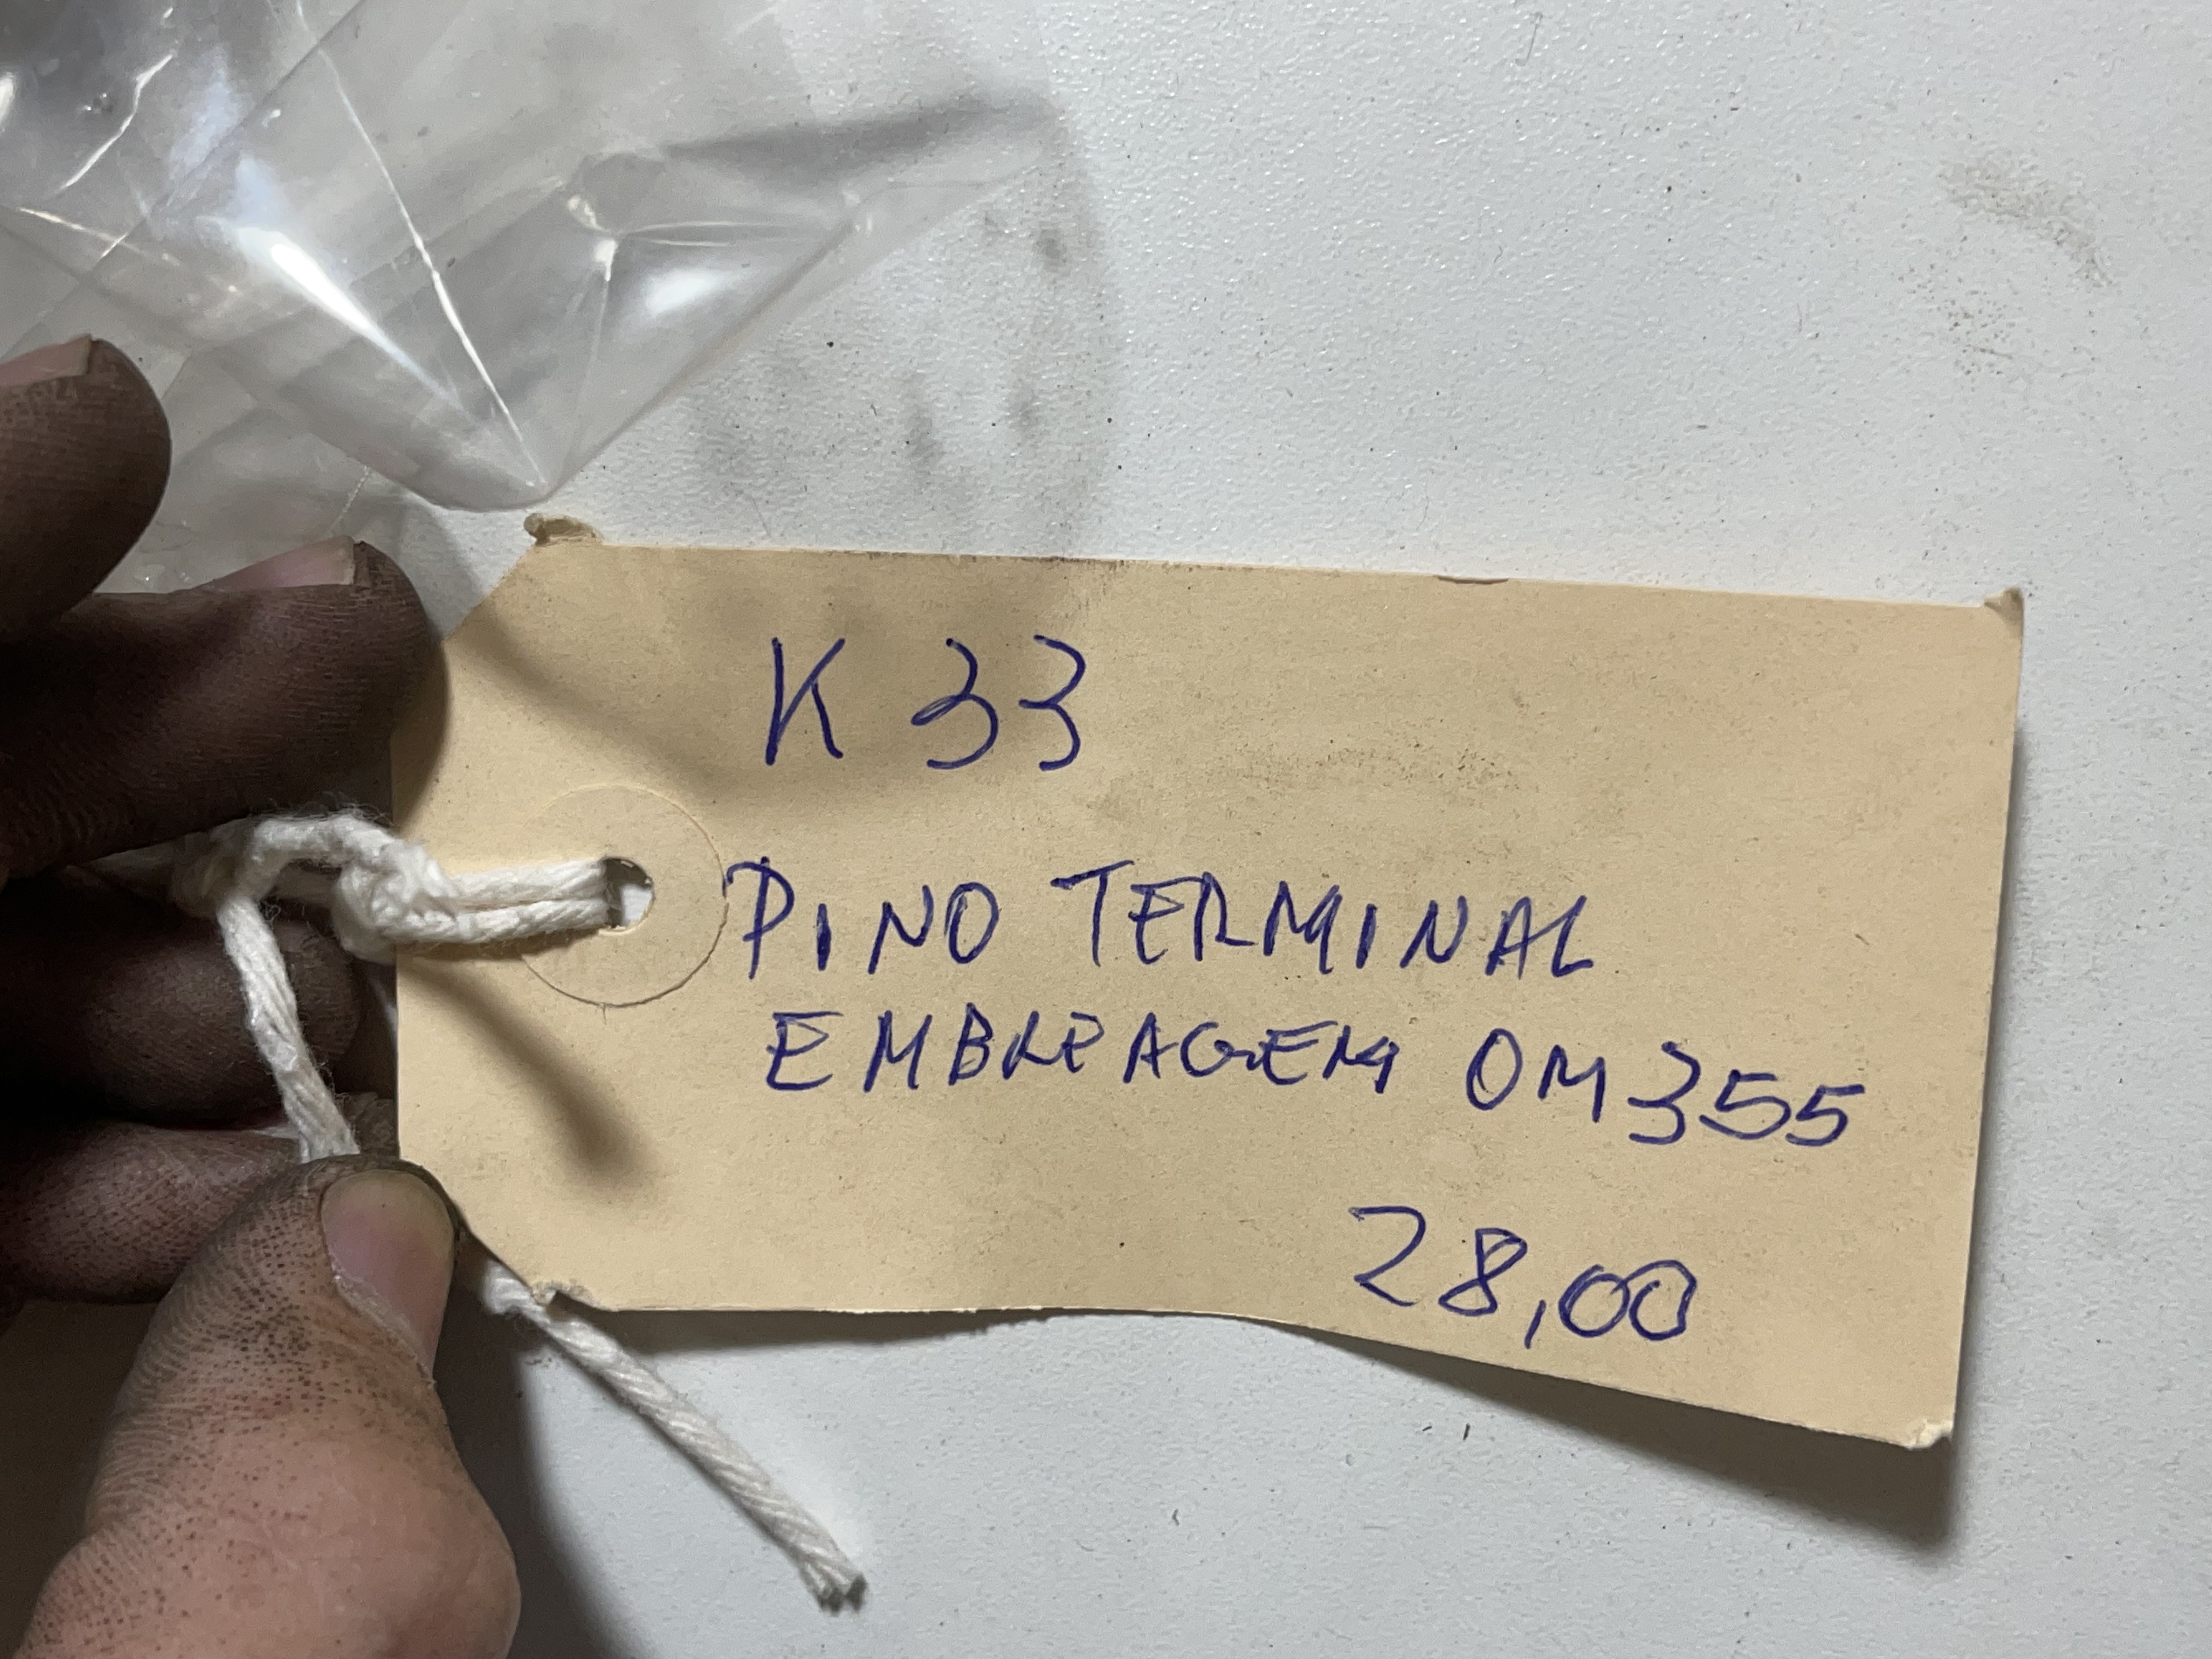 K 33
PINO TERMINAL
EMBREAGEM OM355
28,00